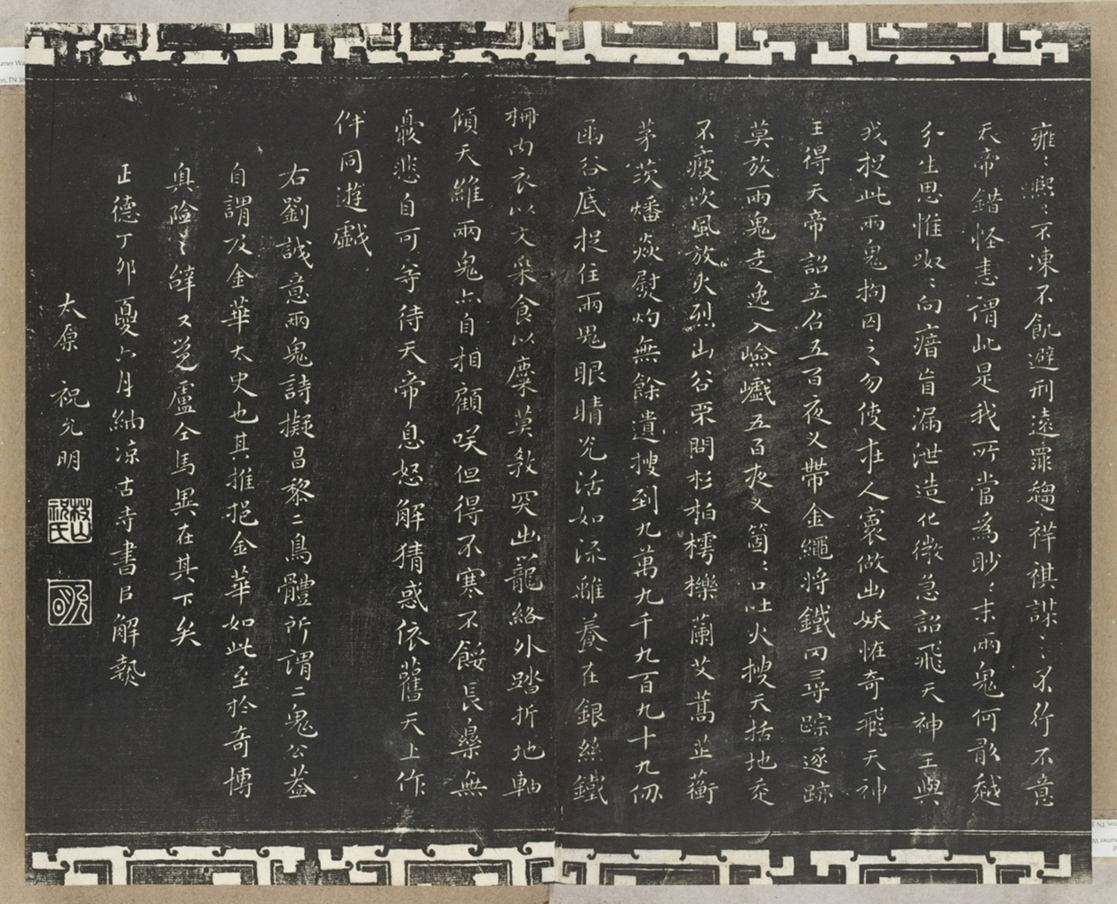 雍〻熙〻不凍不飢避刑遠罪趨祥祺謀〻不行不意
天帝錯怪恚謂此是我所當為眇〻末兩鬼何敢越
分生思惟呶〻向瘖盲漏泄造化微急詔飛天神王與
我捉此兩鬼拘囚之勿使在人寰做出妖怪奇飛天神
王得天帝詔立召五百夜叉帶金繩將鐵网尋蹤逐跡
莫放兩鬼走逸入嶮巇五百夜叉箇〻口吐火搜天括地走
不疲吹風放火烈山谷不問杉柏樗櫟蘭艾蒿芷蘅
茅茨燔焱熨灼無餘遺搜到九萬九千九百九十九仞
幽谷底捉住兩鬼眼睛光活如流離養在銀絲鐵
柵內衣以文采食以麋莫教突出籠絡外踏折地軸
傾天維兩鬼亦自相顧咲但得不寒不餒長樂無
憂悲自可等待天帝息怒解猜惑依舊天上作
伴同遊戲
右劉誠意兩鬼詩擬昌黎二鳥體所謂二鬼公蓋
自謂及金華太史也其推挹金華如此至於奇博
奧險〻譎又覺盧仝馬異在其下矣
正德丁卯憂六月納凉古寺書自解熱
太原 祝允明
枝山
祝氏
明